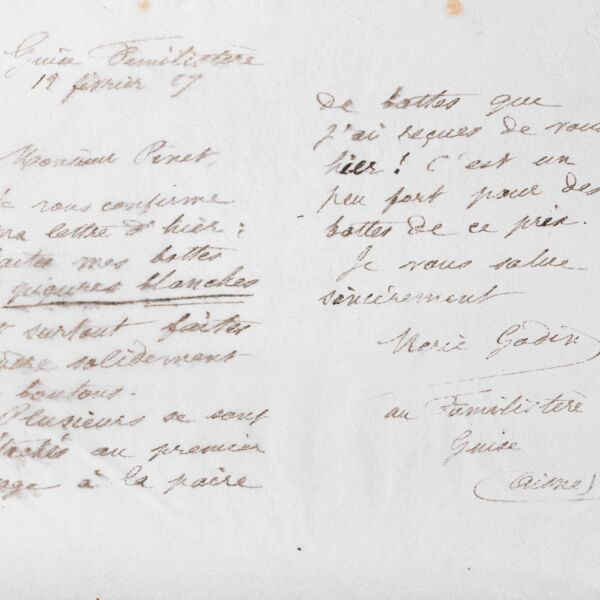 Guise Familistère
19 février 97
Monsieur Pinet,
Je vous confirme
ma lettre d'hier :
faites mes bottes
piqures blanches
et surtout faites
solidement
boutons.
Plusieurs se sont
détachés au premier
à la paire
de bottes que
j'ai reçues de vous
hier ! C'est un
peu fort pour des
bottes de ce prix.
Je vous salue
sincèrement
Marie Godin
au Familistère
Guise
(Aisne)